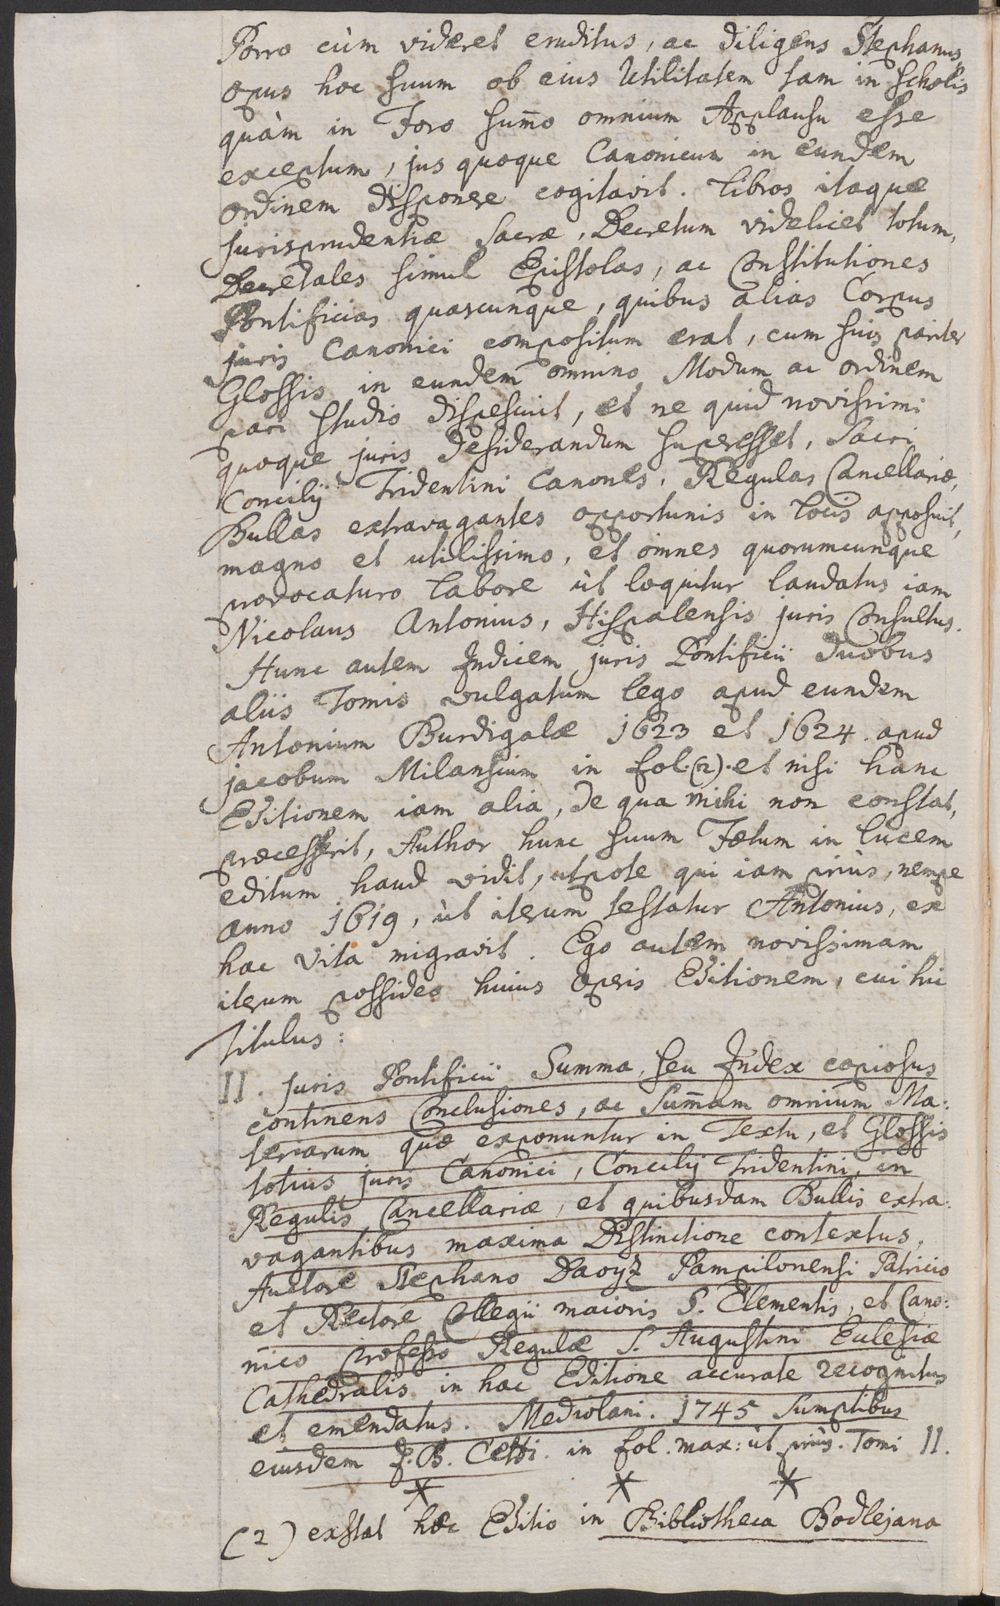 Porro cùm videret eruditus, ac diligens Stephanus,
opus hoc suum ob eius Utilitatem tam in scholis
quàm in Foro sum̄o omnium Applausu esse
exceptum, jus quoque Canonicum in eundem
ordinem disponere cogitavit. Libros itaque
Jurisprudentiæ Sacræ, Decretum videlicet totum,
Decretales simul Epistolas, ac Constitutiones
Pontificias quascunque, quibus alias Corpus
juris Canonici compositum erat, cum suis pariter
Glossis in eundem omnino Modum ac ordinem
pari studio dispescuit, et ne quid novissimi
quoque juris desiderandum superesset, Sacri
Concilij Tridentini Canones, Regulas Cancellariæ,
Bullas extravagantes opportunis in locis apposuit,
magno et utilissimo, et omnes quorumcunque
provocaturo labore ùt loquitur laudatus iam
Nicolaus Antonius, Hispalensis juris Consultus.
Hunc autem Indicem juris Pontificii duobus
aliis Tomis vulgatum lego apud eundem
Antonium Burdigalæ 1623 et 1624. apud
jacobum Milansium in fol.(2). et nisi hanc
Editionem iam alia, de qua mihi non constat,
præcesserit, Author hunc suum Fætum in lucem
editum haud vidit, utpote qui iam priùs, nempe
anno 1619, ùt iterum testatur Antonius, ex
hac vita migravit. Ego autem novissimam
iterum possideo huius operis Editionem, cui hic
titulus:
II. Juris Pontificii Summa, seu Index copiosus
continens Conclusiones, ac Sum̄am omnium Ma:
teriarum quæ exponuntur in Textu, et Glossis
totius juris Canonici, Concilij Tridentini, in
Regulis Cancellariæ, et quibusdam Bullis extra:
vagantibus maxima Distinctione contextus,
Auctore Stephano Daoyz Pampilonensi Patricio
et Rectore Collegii maioris S. Clementis, et Cano:
nico professo Regulæ S. Augustini Eclesiæ
Cathedralis in hac Editione accurate recognitus
et emendatus. Mediolani. 1745 Sumptibus
eiusdem J. B. Cetti. in fol. max: ùt priùs. Tomi II.
* * *
(2) exstat hæc Editio in Bibliotheca Bodlejana